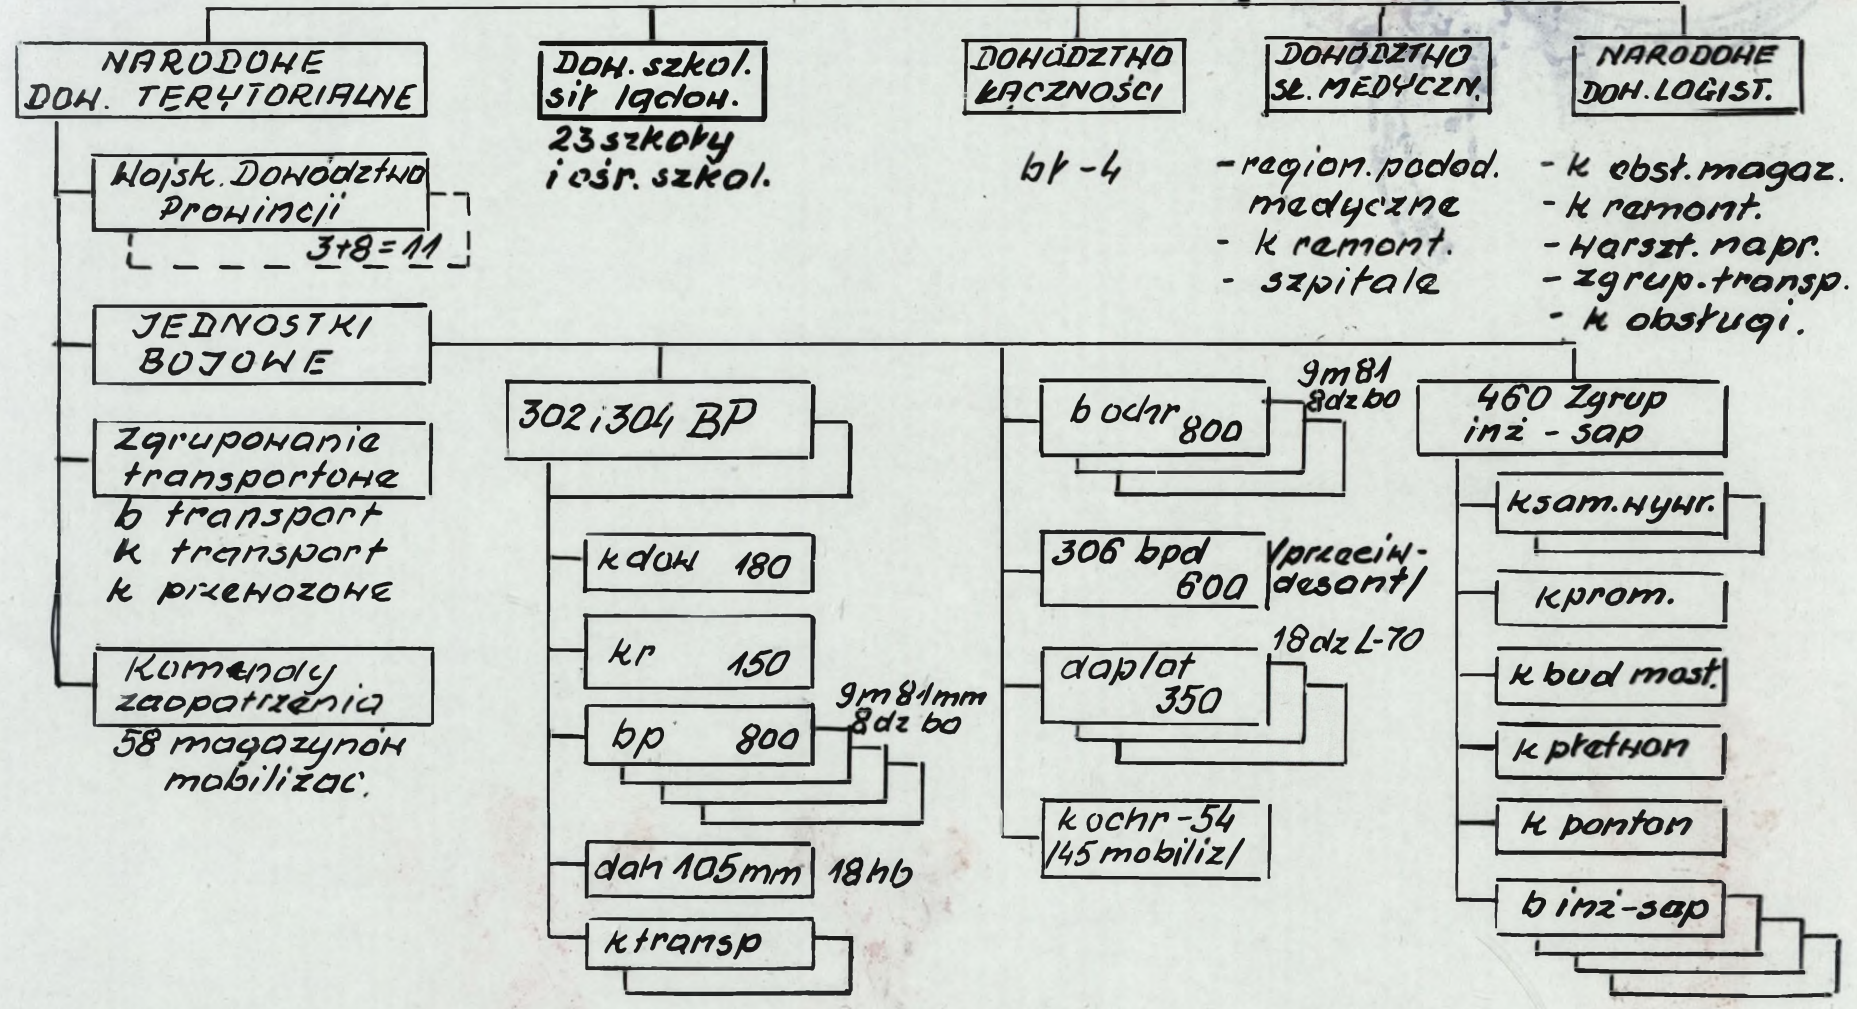 NARODOWE
DOW. TERYTORIALNE
Wojsk. Dowództwo
Prowincji
3+8=11
JEDNOSTKI
BOJOWE
Zgrupowanie
transportowe
b transport
k transport
k przewozowe
Komendy
zaopatrzenia
58 magazynów
mobilizac.
Dow. szkol.
sił lądow.
23 szkoły
i ośr. szkol.
DOWÓDZTWO
ŁĄCZNOŚCI
bł - 4
DOWÓDZTWO
SŁ. MEDYCZN.
- region. podod.
medyczne
- k remont.
- szpitale
NARODOWE
DOW. LOGIST.
- k obsł. magaz.
- k remont.
- warszt. napr.
- zgrup. transp.
- k obsługi.
302 i 304 BP
k dow 180
kr 150
bp 800
9m 81mm
8dz bo
dah 105mm 18hb
k transp
b ochr 800
9m 81
8dz bo
306 bpd
600
/przeciw-
desant/
daplot
350
18dz L-70
k ochr - 54
/45 mobiliz/
460 Zgrup
inż - sap
k sam. wywr.
k prom.
k bud most.
k płetwon
k ponton
b inż-sap